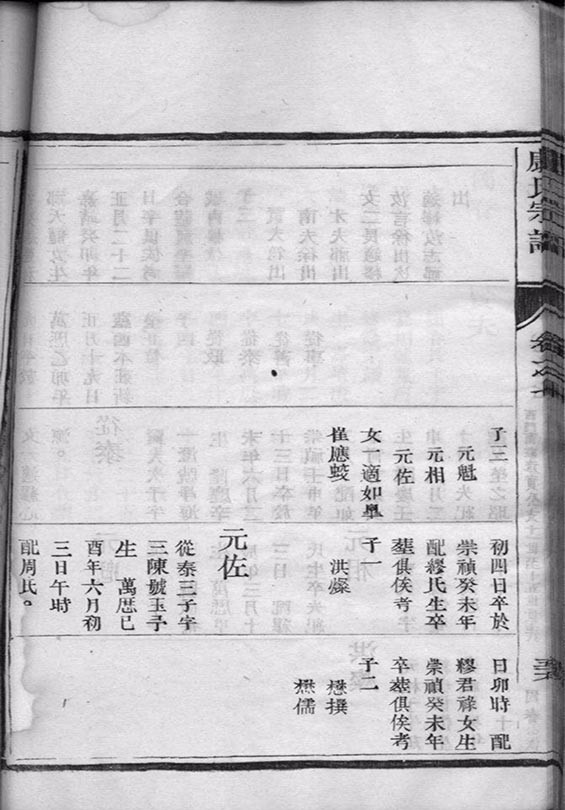 氏宗譜
卷之
子三
元魁
元相
元佐
女適如皋
崔應蛟
初四日卒於
崇禎癸未年
配繆氏生卒
塟俱俟考
子一
洪爍
元佐
從泰三子字
三陳號玉予
生 萬歴已
酉年六月初
三日午時
配周氏。
日卯時 配
繆君祿女生
崇禎癸未年
卒塟俱俟考
子二
懋撰
懋儒